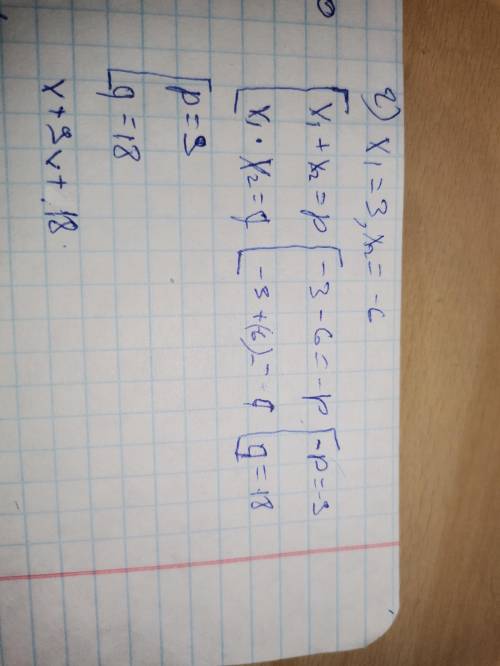 2) x₁ = 3, x₂ = -6
x₁ + x₂ = p [ -3 - 6 = -p [ -p = -3
x₁ · x₂ = q [ -3 + (6) = -q [ q = 18
[ p = 3
[ q = 18
x + 3x + 18